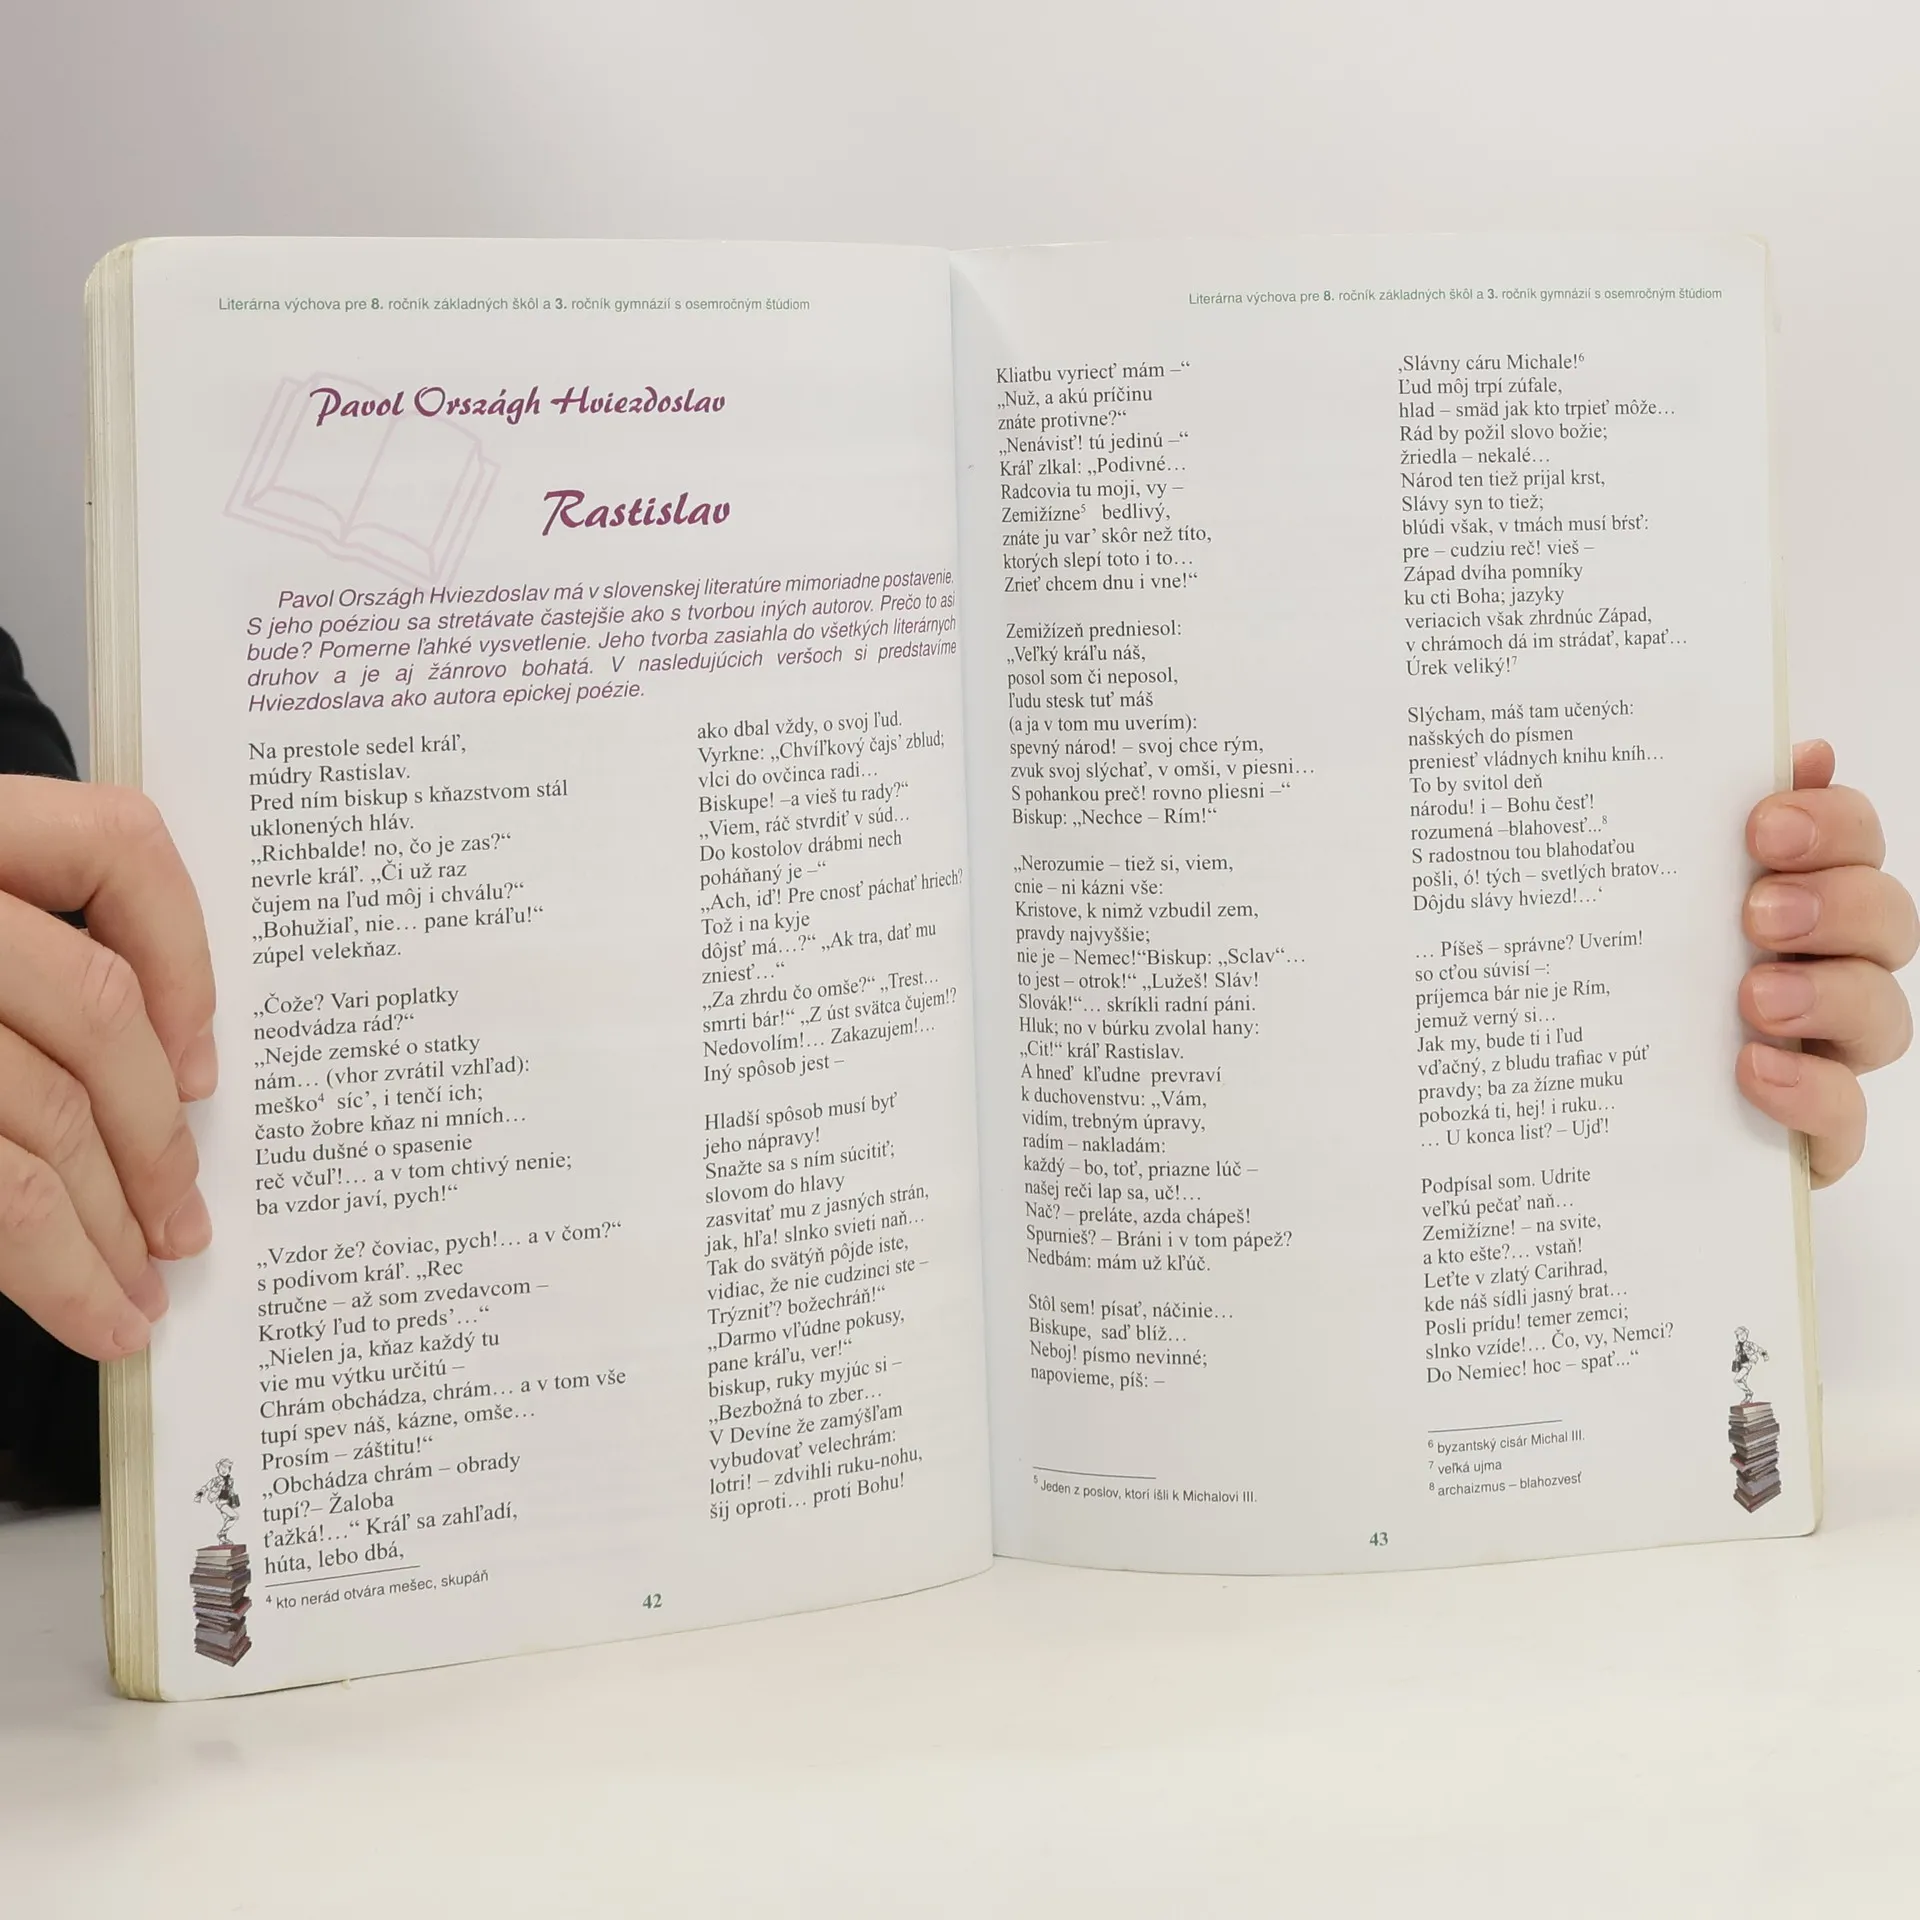 Literárna výchova pre 8. ročník základných škôl a 3. ročník gymnázií s osemročným štúdiom
Pavol Országh Hviezdoslav
Rastislav
Pavol Országh Hviezdoslav má v slovenskej literatúre mimoriadne postavenie.
S jeho poéziou sa stretávate častejšie ako s tvorbou iných autorov. Prečo to asi
bude? Pomerne ľahké vysvetlenie. Jeho tvorba zasiahla do všetkých literárnych
druhov a je aj žánrovo bohatá. V nasledujúcich veršoch si predstavíme
Hviezdoslava ako autora epickej poézie.
Na prestole sedel kráľ,
múdry Rastislav.
Pred ním biskup s kňazstvom stál
uklonených hláv.
„Richbalde! no, čo je zas?“
nevrle kráľ. „Či už raz
čujem na ľud môj i chválu?“
„Bohužiaľ, nie... pane kráľu!“
zúpel velekňaz.
„Čože? Vari poplatky
neodvádza rád?“
„Nejde zemské o statky
nám... (vhor zvrátil vzhľad):
meško⁴ síc’, i tenčí ich;
často žobre kňaz ni mních...
Ľudu dušné o spasenie
reč včuľ!... a v tom chtivý nenie;
ba vzdor javí, pych!“
„Vzdor že? čoviac, pych!... a v čom?“
s podivom kráľ. „Rec
stručne – až som zvedavcom –
Krotký ľud to preds’...“
„Nielen ja, kňaz každý tu
vie mu výtku určitú –
Chrám obchádza, chrám... a v tom vše
tupí spev náš, kázne, omše...
Prosím – záštitu!“
„Obchádza chrám – obrady
tupí?– Žaloba
ťažká!...“ Kráľ sa zahľadí,
húta, lebo dbá,
⁴ kto nerád otvára mešec, skupáň
ako dbal vždy, o svoj ľud.
Vyrkne: „Chvíľkový čajs’ zblud;
vlci do ovčinca radi...
Biskupe! –a vieš tu rady?“
„Viem, ráč stvrdiť v súd...
Do kostolov drábmi nech
poháňaný je –“
„Ach, iď! Pre cnosť páchať hriech?
Tož i na kyje
dôjsť má...?“ „Ak tra, dať mu
zniesť...“
„Za zhrdu čo omše?“ „Trest...
smrti bár!“ „Z úst svätca čujem!?
Nedovolím!... Zakazujem!...
Iný spôsob jest –
Hladší spôsob musí byť
jeho nápravy!
Snažte sa s ním súcitiť;
slovom do hlavy
zasvitať mu z jasných strán,
jak, hľa! slnko svieti naň...
Tak do svätýň pôjde iste,
vidiac, že nie cudzinci ste –
Trýzniť? božechráň!“
„Darmo vľúdne pokusy,
pane kráľu, ver!“
biskup, ruky myjúc si –
„Bezbožná to zber...
V Devíne že zamýšľam
vybudovať velechrám:
lotri! – zdvihli ruku-nohu,
šij oproti... proti Bohu!
42
Literárna výchova pre 8. ročník základných škôl a 3. ročník gymnázií s osemročným štúdiom
Kliatbu vyriecť mám –“
„Nuž, a akú príčinu
znáte protivne?“
„Nenávisť! tú jedinú –“
Kráľ zlkal: „Podivné...
Radcovia tu moji, vy –
Zemižízne⁵ bedlivý,
znáte ju var’ skôr než títo,
ktorých slepí toto i to...
Zrieť chcem dnu i vne!“
Zemižízeň predniesol:
„Veľký kráľu náš,
posol som či neposol,
ľudu stesk tuť máš
(a ja v tom mu uverím):
spevný národ! – svoj chce rým,
zvuk svoj slýchať, v omši, v piesni...
S pohankou preč! rovno pliesni –“
Biskup: „Nechce – Rím!“
„Nerozumie – tiež si, viem,
cnie – ni kázni vše:
Kristove, k nimž vzbudil zem,
pravdy najvyššie;
nie je – Nemec!“Biskup: „Sclav“...
to jest – otrok!“ „Lužeš! Sláv!
Slovák!“... skríkli radní páni.
Hluk; no v búrku zvolal hany:
„Cit!“ kráľ Rastislav.
A hneď kľudne prevraví
k duchovenstvu: „Vám,
vidím, trebným úpravy,
radím – nakladám:
každý – bo, toť, priazne lúč –
našej reči lap sa, uč!...
Nač? – preláte, azda chápeš!
Spurnieš? – Bráni i v tom pápež?
Nedbám: mám už kľúč.
Stôl sem! písať, náčinie...
Biskupe, saď blíž...
Neboj! písmo nevinné;
napovieme, píš: –
⁵ Jeden z poslov, ktorí išli k Michalovi III.
‚Slávny cáru Michale!⁶
Ľud môj trpí zúfale,
hlad – smäd jak kto trpieť môže...
Rád by požil slovo božie;
žriedla – nekalé...
Národ ten tiež prijal krst,
Slávy syn to tiež;
blúdi však, v tmách musí bŕsť:
pre – cudziu reč! vieš –
Západ dvíha pomníky
ku cti Boha; jazyky
veriacich však zhrdnúc Západ,
v chrámoch dá im strádať, kapať...
Úrek veliký!⁷
Slýcham, máš tam učených:
našských do písmen
preniesť vládnych knihu kníh...
To by svitol deň
národu! i – Bohu česť!
rozumená –blahovesť...⁸
S radostnou tou blahodaťou
pošli, ó! tých – svetlých bratov...
Dôjdu slávy hviezd!...‘
... Píšeš – správne? Uverím!
so cťou súvisí –:
príjemca bár nie je Rím,
jemuž verný si...
Jak my, bude ti i ľud
vďačný, z bludu trafiac v púť
pravdy; ba za žízne muku
pobozká ti, hej! i ruku...
... U konca list? – Ujď!
Podpísal som. Udrite
veľkú pečať naň...
Zemižízne! – na svite,
a kto ešte?... vstaň!
Leťte v zlatý Carihrad,
kde náš sídli jasný brat...
Posli prídu! temer zemci;
slnko vzíde!... Čo, vy, Nemci?
Do Nemiec! hoc – spať...“
⁶ byzantský cisár Michal III.
⁷ veľká ujma
⁸ archaizmus – blahozvesť
43